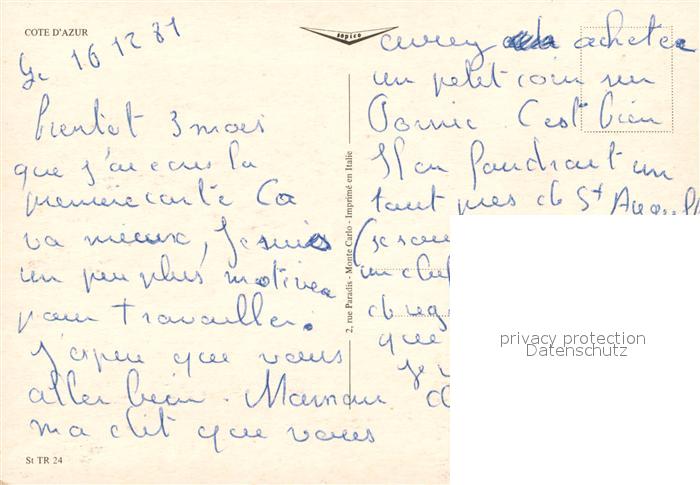 COTE D'AZUR
sopico
Le 16 12 81
bientot 3 mois
que j'ai ecris la
premiere carte Ca
va mieux, Je suis
un peu plus motivée
pour travailler.
J'espere que vous
aller bien. Maman
ma dit que vous
St TR 24
2, rue Paradis - Monte Carlo - Imprimé en Italie
acheter
un petit coin sur
Pornic. C'est bien
Il en faudrait un
tout pres de St
(je
un
de
que
je
privacy protection
Datenschutz